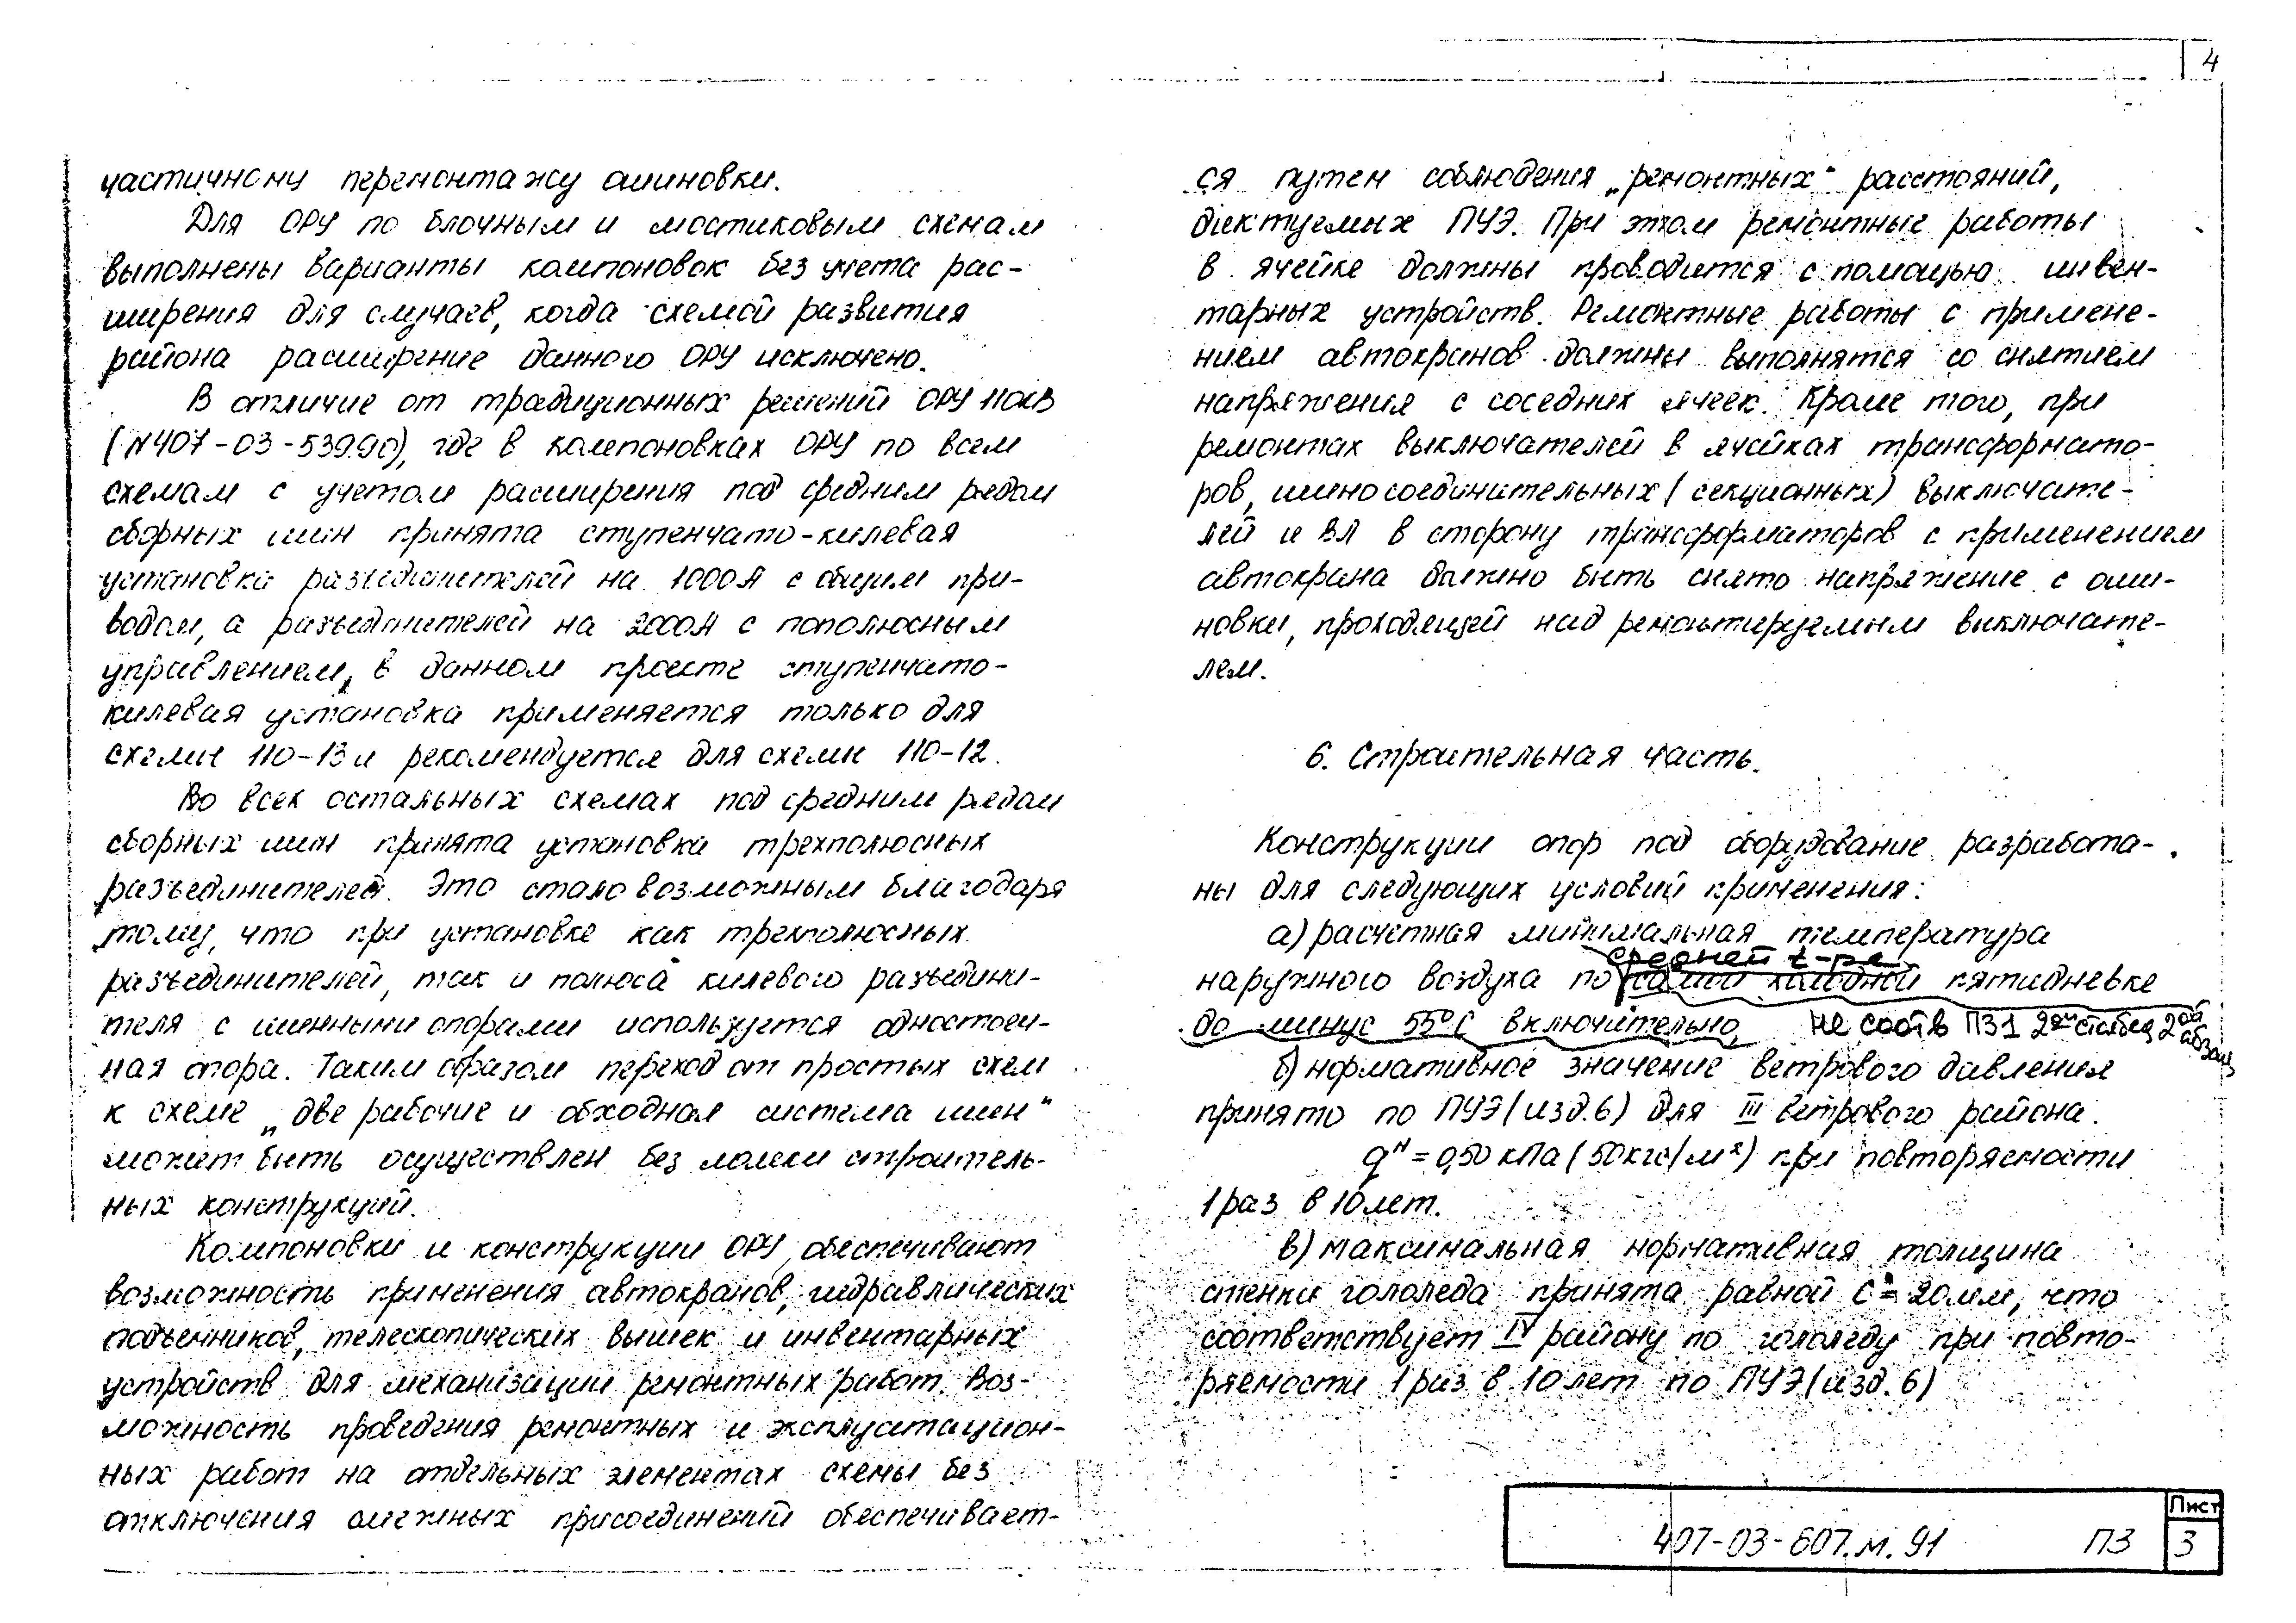 4
частичному перемонтажу ошиновки.
Для ОРУ по блочным и мостиковым схемам
выполнены варианты компоновок без учета рас-
ширения для случаев, когда схемой развития
района расширение данного ОРУ исключено.
В отличие от традиционных решений ОРУ 110кВ
(N407-03-539.90), где в компоновках ОРУ по всем
схемам с учетом расширения под средним рядом
сборных шин принята ступенчато-килевая
установка разъединителей на 1000А с общим при-
водом, а разъединителей на 2000А с пополюсным
управлением, в данном проекте ступенчато-
килевая установка применяется только для
схемы 110-13 и рекомендуется для схемы 110-12.
Во всех остальных схемах под средним рядом
сборных шин принята установка трехполюсных
разъединителей. Это стало возможным благодаря
тому, что при установке как трехполюсных
разъединителей, так и полюса килевого разъедини-
теля с шинными опорами используется одностоеч-
ная опора. Таким образом переход от простых схем
к схеме „две рабочие и обходная система шин"
может быть осуществлен без ломки строитель-
ных конструкций.
Компоновки и конструкции ОРУ обеспечивают
возможность применения автокранов, гидравлических
подъемников, телескопических вышек и инвентарных
устройств для механизации ремонтных работ. Воз-
можность проведения ремонтных и эксплуатацион-
ных работ на отдельных элементах схемы без
отключения смежных присоединений обеспечивает-
ся путем соблюдения „ремонтных" расстояний,
диктуемых ПУЭ. При этом ремонтные работы
в ячейке должны проводится с помощью инвен-
тарных устройств. Ремонтные работы с примене-
нием автокранов должны выполнятся со снятием
напряжения с соседних ячеек. Кроме того, при
ремонтах выключателей в ячейках трансформато-
ров, шиносоединительных (секционных) выключате-
лей и ВЛ в сторону трансформаторов с применением
автокрана должно быть снято напряжение с оши-
новки, проходящей над ремонтируемым выключате-
лем.
6. Строительная часть.
Конструкции опор под оборудование разработа-
ны для следующих условий применения:
а) расчетная минимальная температура
средней t-ре
наружного воздуха по самой холодной пятидневке
до минус 55°С включительно, не соотв ПЗ1 2ой столбец 2ой абзац
б) нормативное значение ветрового давления
принято по ПУЭ (изд. 6) для III ветрового района.
qн = 0,50 кПа (50кгс/м²) при повторяемости
1 раз в 10 лет.
в) максимальная нормативная толщина
стенки гололеда принята равной С = 20мм, что
соответствует IV району по гололеду при повто-
ряемости 1 раз в 10 лет по ПУЭ (изд. 6)
407-03-607.м.91 ПЗ
Лист
3